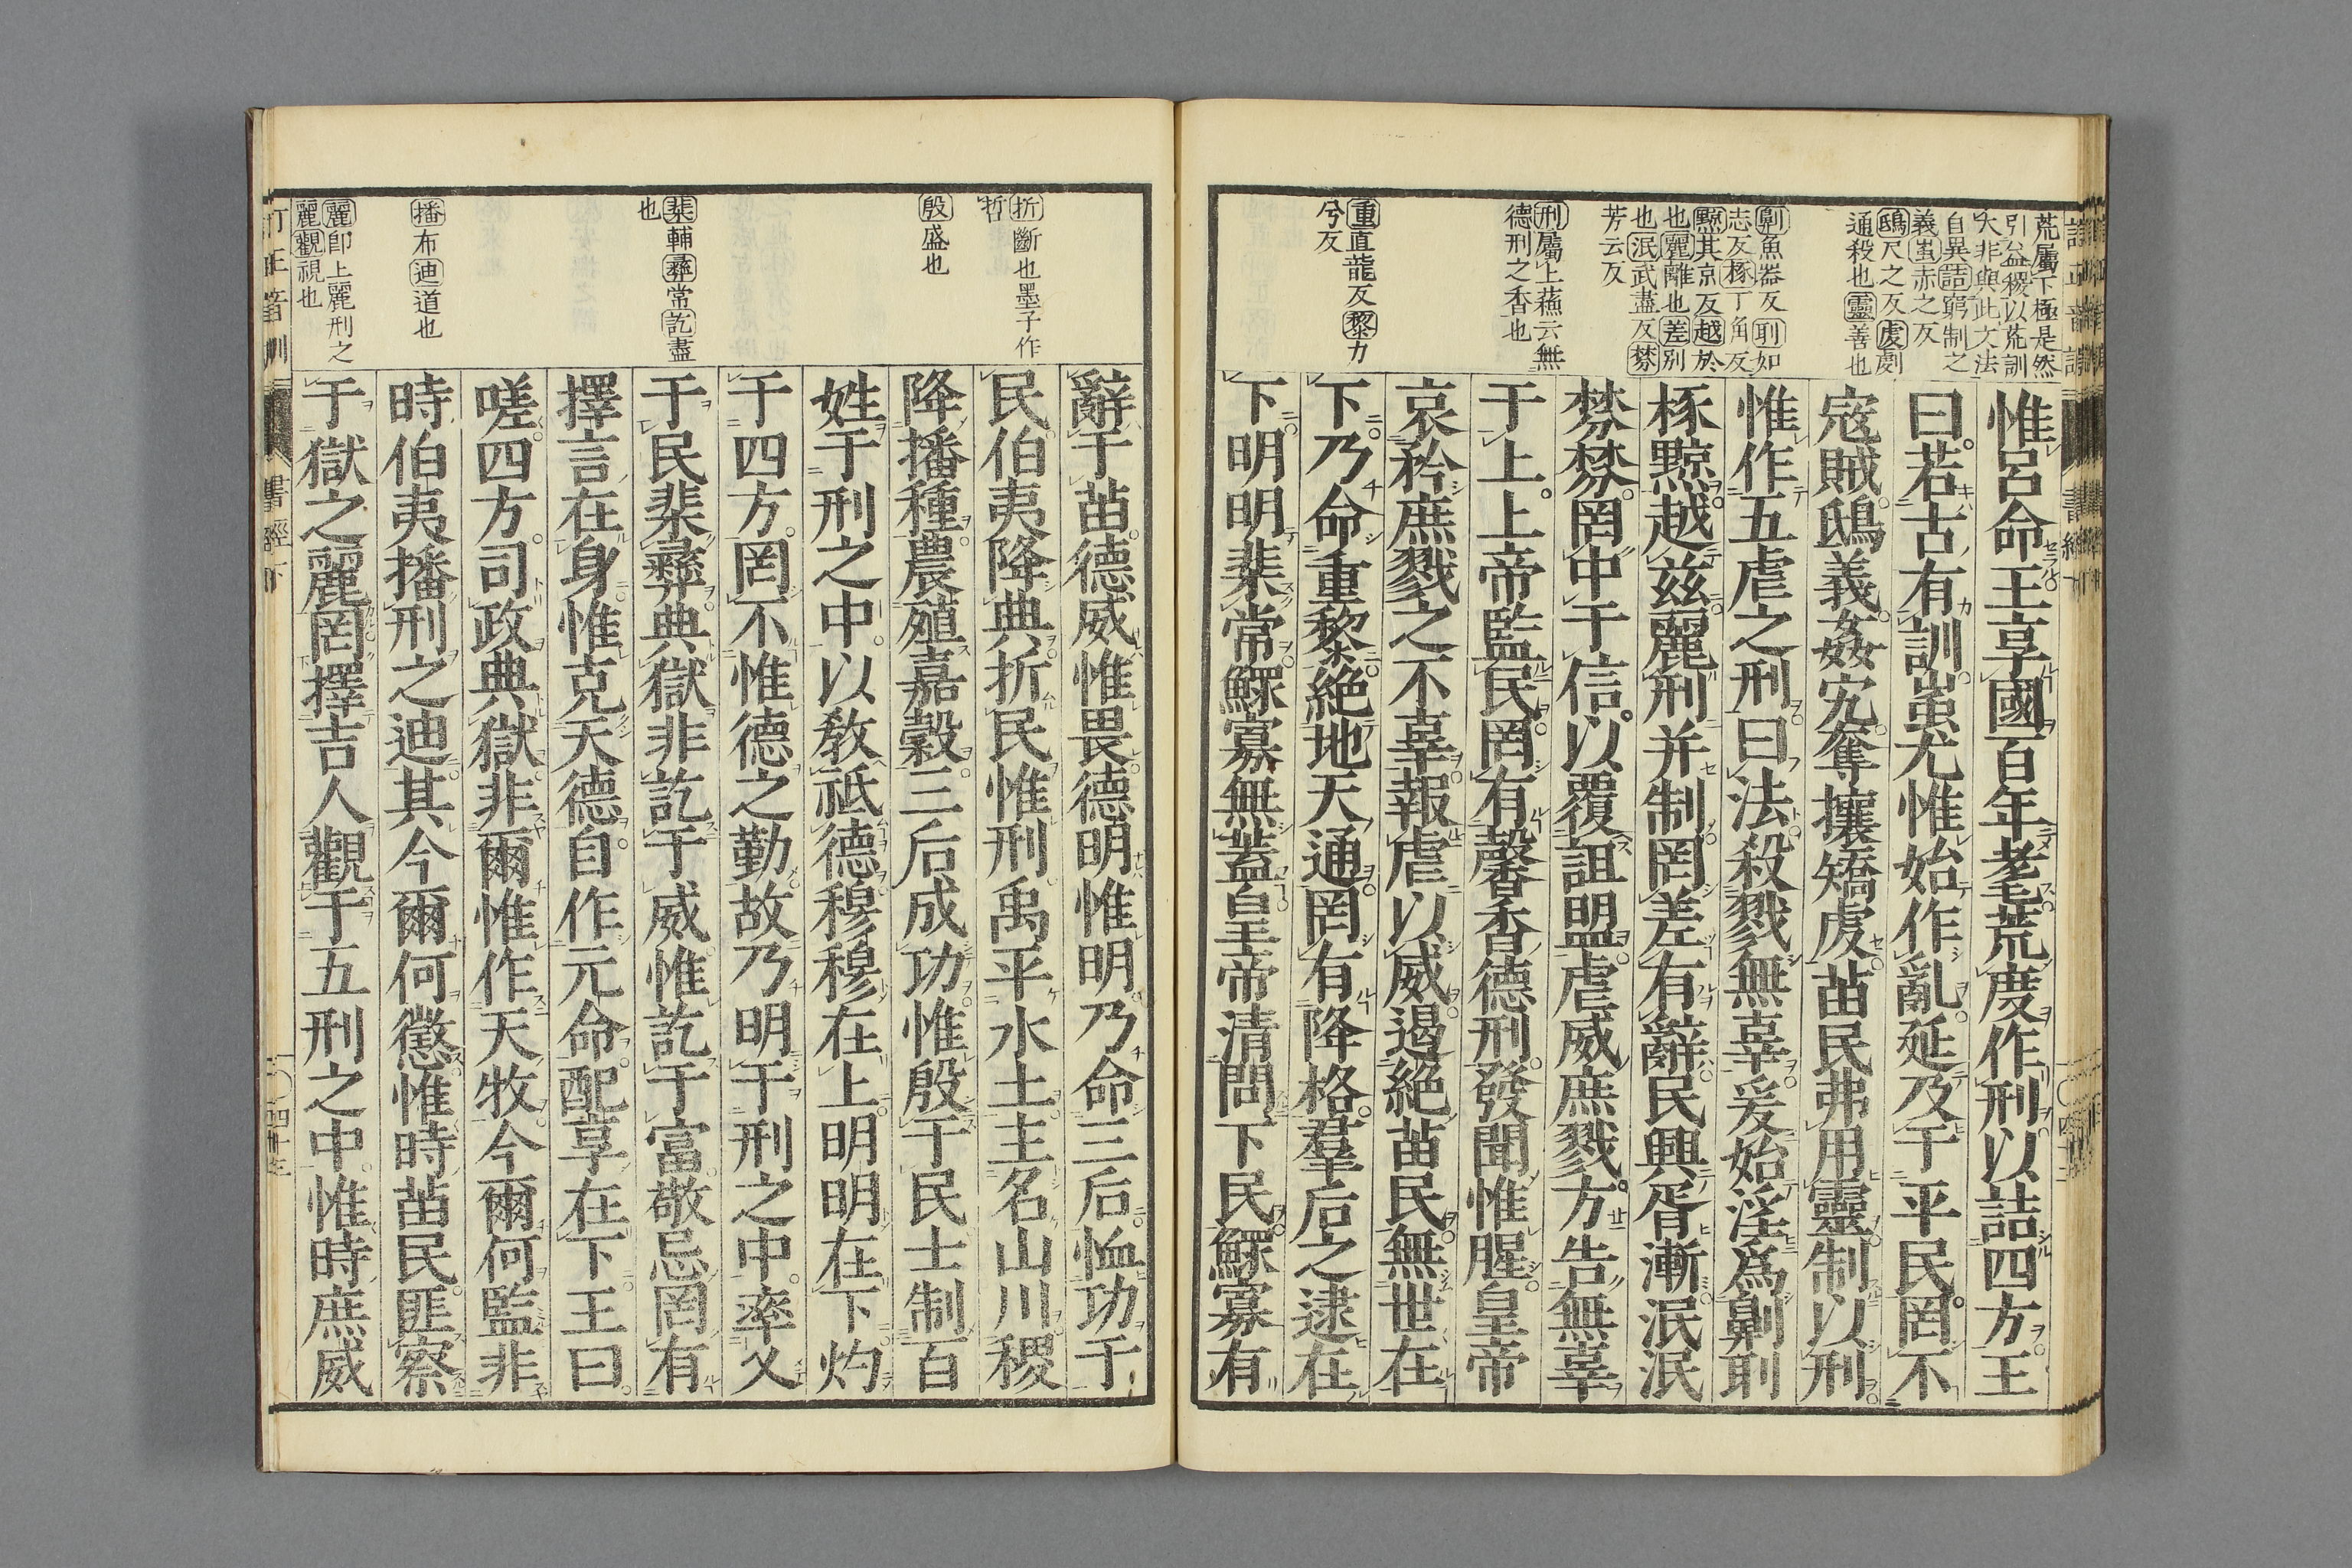 荒屬下極是然
引益稷以荒訓
大非與此文法
自異詰窮制之
義蚩赤之反
鴟尺之反虔劇
通殺也靈善也
劓魚器反刵如
志反椓丁角反
黥其京反越於
也麗離也差別
也泯武盡反棼
芳云反
刑屬上蕪云無
德刑之香也
重直龍反黎力
兮反
惟呂命王享國百年耄荒度作刑以詰四方王
曰若古有訓蚩尤惟始作亂延及于平民罔不
寇賊鴟義姦宄奪攘矯虔苗民弗用靈制以刑
惟作五虐之刑曰法殺戮無辜爰始淫爲劓刵
椓黥越兹麗刑并制罔差有辭民興胥漸泯泯
棼棼罔中于信以覆詛盟虐威庶戮方告無辜
于上上帝監民罔有馨香德刑發聞惟腥皇帝
哀矜庶戮之不辜報虐以威遏絕苗民無世在
下乃命重黎絕地天通罔有降格羣后之逮在
下明明棐常鰥寡無蓋皇帝清問下民鰥寡有
折斷也墨子作
哲
殷盛也
棐輔彝常訖盡
也
播布迪道也
麗卽上麗刑之
麗觀視也
辭于苗德威惟畏德明惟明乃命三后恤功于
民伯夷降典折民惟刑禹平水土主名山川稷
降播種農殖嘉穀三后成功惟殷于民士制百
姓于刑之中以敎祗德穆穆在上明明在下灼
于四方罔不惟德之勤故乃明于刑之中率乂
于民棐彝典獄非訖于威惟訖于富敬忌罔有
擇言在身惟克天德自作元命配享在下王曰
嗟四方司政典獄非爾惟作天牧今爾何監非
時伯夷播刑之迪其今爾何懲惟時苗民匪察
于獄之麗罔擇吉人觀于五刑之中惟時庶威
訂正音訓
書經下